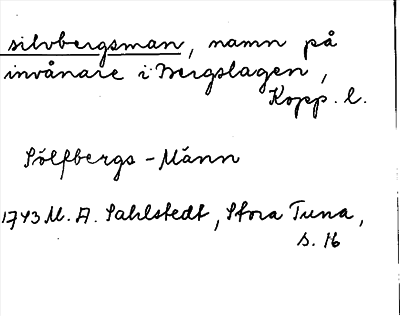 silvbergsman, namn på
invånare i Bergslagen,
Kopp. l.
Sölfbergs-Männ
1743 M. A. Sahlstedt, Stora Tuna,
s. 16